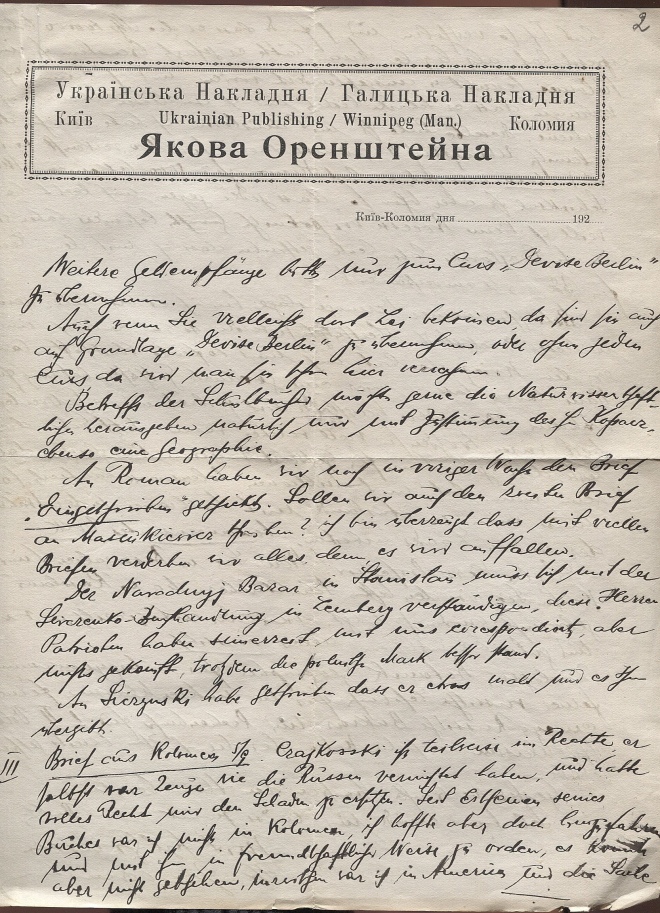 2
Українська Накладня / Галицька Накладня
Київ Ukrainian Publishing / Winnipeg (Man.) Коломия
Якова Оренштейна
Київ-Коломия дня 192
Weitere Geldempfänge bitte nur zum Curs „Devise Berlin"
zu übernehmen.
Auch wenn Sie vielleicht dort Lei bekommen, da sind sie auch
auf Grundlage „Devise Berlin" zu übernehmen, oder ohne jeden
Curs da wird man sie schon hier verrechnen.
Betreffs der Schulbücher möchte gerne die Naturwissenschaft-
liche herausgeben natürlich nur mit Zustimmung des H.
ebenso eine Geographie.
An Roman haben wir noch in voriger Woche den Brief
„Eingeschrieben" geschickt. Sollen wir auch den zweiten Brief
an schreiben? ich bin überzeugt dass mit vielen
Briefen verderben wir alles, denn es wird auffallen.
Der Narodnyj Bazar in Stanislau muss sich mit der
Sevczenko Buchhandlung in Lemberg verständigen, diese Herren
Patrioten haben seinerzeit mit uns correspondiert, aber
nichts gekauft, trotzdem die polnische Mark besser stand.
An habe geschrieben dass er etwas malt und es Ihnen
übergibt.
III Brief aus Kolomea 5/9. Czajkowski ist teilweise im Rechte, er
selbst war Zeuge wie die Russen vernichtet haben, und hatte
volles Recht mir den Schaden zu ersetzen. Seit Erscheinen seines
Buches war ich nicht in Kolomea, ich hoffte aber doch
und mit ihm in freundschaftlicher Weise zu ordnen, es konnte
aber nicht geschehen, inzwischen war ich in America und die Sache